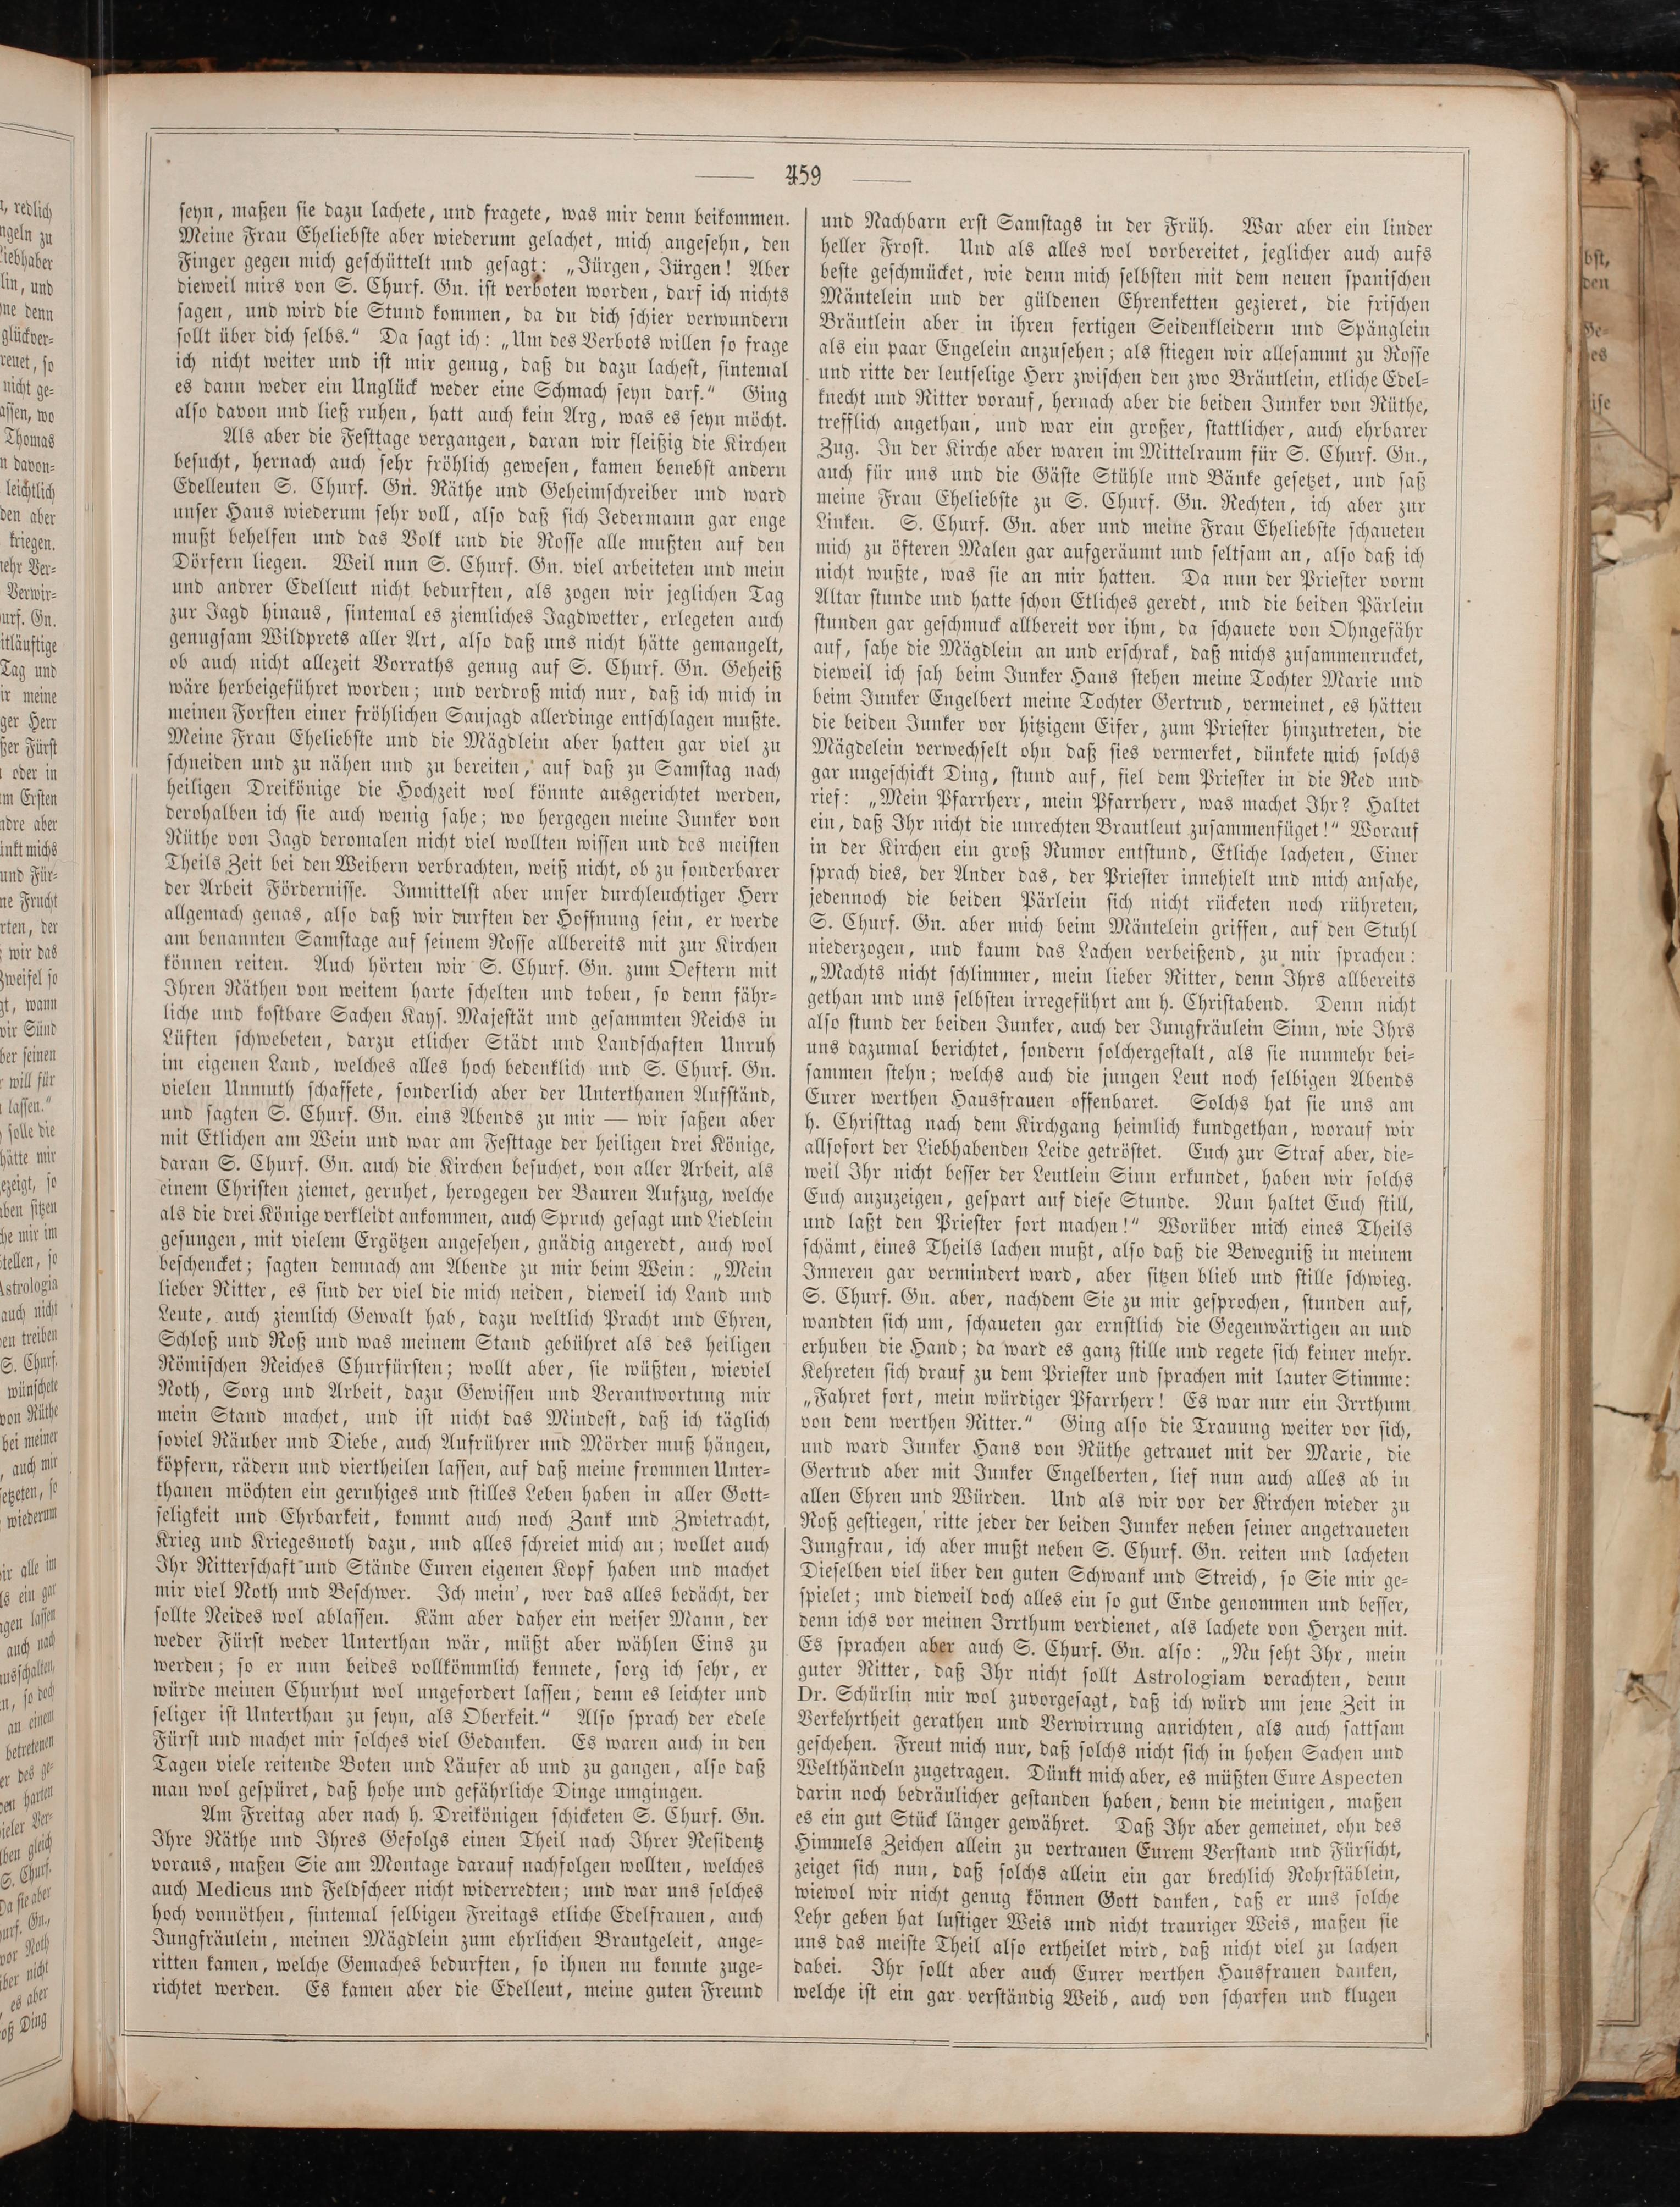 459
seyn, maßen sie dazu lachete, und fragete, was mir denn beikommen.
Meine Frau Eheliebste aber wiederum gelachet, mich angesehn, den
Finger gegen mich geschüttelt und gesagt: „Jürgen, Jürgen! Aber
dieweil mirs von S. Churf. Gn. ist verboten worden, darf ich nichts
sagen, und wird die Stund kommen, da du dich schier verwundern
sollt über dich selbs.“ Da sagt ich: „Um des Verbots willen so frage
ich nicht weiter und ist mir genug, daß du dazu lachest, sintemal
es dann weder ein Unglück weder eine Schmach seyn darf.“ Ging
also davon und ließ ruhen, hatt auch kein Arg, was es seyn möcht.
Als aber die Festtage vergangen, daran wir fleißig die Kirchen
besucht, hernach auch sehr fröhlich gewesen, kamen benebst andern
Edelleuten S. Churf. Gn. Räthe und Geheimschreiber und ward
unser Haus wiederum sehr voll, also daß sich Jedermann gar enge
mußt behelfen und das Volk und die Rosse alle mußten auf den
Dörfern liegen. Weil nun S. Churf. Gn. viel arbeiteten und mein
und andrer Edelleut nicht bedurften, als zogen wir jeglichen Tag
zur Jagd hinaus, sintemal es ziemliches Jagdwetter, erlegeten auch
genugsam Wildprets aller Art, also daß uns nicht hätte gemangelt,
ob auch nicht allezeit Vorraths genug auf S. Churf. Gn. Geheiß
wäre herbeigeführet worden; und verdroß mich nur, daß ich mich in
meinen Forsten einer fröhlichen Saujagd allerdinge entschlagen mußte.
Meine Frau Eheliebste und die Mägdlein aber hatten gar viel zu
schneiden und zu nähen und zu bereiten, auf daß zu Samstag nach
heiligen Dreikönige die Hochzeit wol könnte ausgerichtet werden,
derohalben ich sie auch wenig sahe; wo hergegen meine Junker von
Rüthe von Jagd deromalen nicht viel wollten wissen und des meisten
Theils Zeit bei den Weibern verbrachten, weiß nicht, ob zu sonderbarer
der Arbeit Fördernisse. Inmittelst aber unser durchleuchtiger Herr
allgemach genas, also daß wir durften der Hoffnung sein, er werde
am benannten Samstage auf seinem Rosse allbereits mit zur Kirchen
können reiten. Auch hörten wir S. Churf. Gn. zum Oeftern mit
Ihren Räthen von weitem harte schelten und toben, so denn fähr-
liche und kostbare Sachen Kays. Majestät und gesammten Reichs in
Lüften schwebeten, darzu etlicher Städt und Landschaften Unruh
im eigenen Land, welches alles hoch bedenklich und S. Churf. Gn.
vielen Unmuth schaffete, sonderlich aber der Unterthanen Aufständ,
und sagten S. Churf. Gn. eins Abends zu mir — wir saßen aber
mit Etlichen am Wein und war am Festtage der heiligen drei Könige,
daran S. Churf. Gn. auch die Kirchen besuchet, von aller Arbeit, als
einem Christen ziemet, geruhet, herogegen der Bauren Aufzug, welche
als die drei Könige verkleidt ankommen, auch Spruch gesagt und Liedlein
gesungen, mit vielem Ergötzen angesehen, gnädig angeredt, auch wol
beschencket; sagten demnach am Abende zu mir beim Wein: „Mein
lieber Ritter, es sind der viel die mich neiden, dieweil ich Land und
Leute, auch ziemlich Gewalt hab, dazu weltlich Pracht und Ehren,
Schloß und Roß und was meinem Stand gebühret als des heiligen
Römischen Reiches Churfürsten; wollt aber, sie wüßten, wieviel
Noth, Sorg und Arbeit, dazu Gewissen und Verantwortung mir
mein Stand machet, und ist nicht das Mindest, daß ich täglich
soviel Räuber und Diebe, auch Aufrührer und Mörder muß hängen,
köpfern, rädern und viertheilen lassen, auf daß meine frommen Unter-
thanen möchten ein geruhiges und stilles Leben haben in aller Gott-
seligkeit und Ehrbarkeit, kommt auch noch Zank und Zwietracht,
Krieg und Kriegesnoth dazu, und alles schreiet mich an; wollet auch
Ihr Ritterschaft und Stände Euren eigenen Kopf haben und machet
mir viel Noth und Beschwer. Ich mein', wer das alles bedächt, der
sollte Neides wol ablassen. Käm aber daher ein weiser Mann, der
weder Fürst weder Unterthan wär, müßt aber wählen Eins zu
werden; so er nun beides vollkömmlich kennete, sorg ich sehr, er
würde meinen Churhut wol ungefordert lassen, denn es leichter und
seliger ist Unterthan zu seyn, als Oberkeit.“ Also sprach der edele
Fürst und machet mir solches viel Gedanken. Es waren auch in den
Tagen viele reitende Boten und Läufer ab und zu gangen, also daß
man wol gespüret, daß hohe und gefährliche Dinge umgingen.
Am Freitag aber nach h. Dreikönigen schicketen S. Churf. Gn.
Ihre Räthe und Ihres Gefolgs einen Theil nach Ihrer Residentz
voraus, maßen Sie am Montage darauf nachfolgen wollten, welches
auch Medicus und Feldscheer nicht widerredten; und war uns solches
hoch vonnöthen, sintemal selbigen Freitags etliche Edelfrauen, auch
Jungfräulein, meinen Mägdlein zum ehrlichen Brautgeleit, ange-
ritten kamen, welche Gemaches bedurften, so ihnen nu konnte zuge-
richtet werden. Es kamen aber die Edelleut, meine guten Freund
und Nachbarn erst Samstags in der Früh. War aber ein linder
heller Frost. Und als alles wol vorbereitet, jeglicher auch aufs
beste geschmücket, wie denn mich selbsten mit dem neuen spanischen
Mäntelein und der güldenen Ehrenketten gezieret, die frischen
Bräutlein aber in ihren fertigen Seidenkleidern und Spänglein
als ein paar Engelein anzusehen; als stiegen wir allesammt zu Rosse
und ritte der leutselige Herr zwischen den zwo Bräutlein, etliche Edel-
knecht und Ritter vorauf, hernach aber die beiden Junker von Rüthe,
trefflich angethan, und war ein großer, stattlicher, auch ehrbarer
Zug. In der Kirche aber waren im Mittelraum für S. Churf. Gn.,
auch für uns und die Gäste Stühle und Bänke gesetzet, und saß
meine Frau Eheliebste zu S. Churf. Gn. Rechten, ich aber zur
Linken. S. Churf. Gn. aber und meine Frau Eheliebste schaueten
mich zu öfteren Malen gar aufgeräumt und seltsam an, also daß ich
nicht wußte, was sie an mir hatten. Da nun der Priester vorm
Altar stunde und hatte schon Etliches geredt, und die beiden Pärlein
stunden gar geschmuck allbereit vor ihm, da schauete von Ohngefähr
auf, sahe die Mägdlein an und erschrak, daß michs zusammenrucket,
dieweil ich sah beim Junker Hans stehen meine Tochter Marie und
beim Junker Engelbert meine Tochter Gertrud, vermeinet, es hätten
die beiden Junker vor hitzigem Eifer, zum Priester hinzutreten, die
Mägdelein verwechselt ohn daß sies vermerket, dünkete mich solchs
gar ungeschickt Ding, stund auf, fiel dem Priester in die Red und
rief: „Mein Pfarrherr, mein Pfarrherr, was machet Ihr? Haltet
ein, daß Ihr nicht die unrechten Brautleut zusammenfüget!“ Worauf
in der Kirchen ein groß Rumor entstund, Etliche lacheten, Einer
sprach dies, der Ander das, der Priester innehielt und mich ansahe,
jedennoch die beiden Pärlein sich nicht rücketen noch rühreten,
S. Churf. Gn. aber mich beim Mäntelein griffen, auf den Stuhl
niederzogen, und kaum das Lachen verbeißend, zu mir sprachen:
„Machts nicht schlimmer, mein lieber Ritter, denn Ihrs allbereits
gethan und uns selbsten irregeführt am h. Christabend. Denn nicht
also stund der beiden Junker, auch der Jungfräulein Sinn, wie Ihrs
uns dazumal berichtet, sondern solchergestalt, als sie nunmehr bei-
sammen stehn; welchs auch die jungen Leut noch selbigen Abends
Eurer werthen Hausfrauen offenbaret. Solchs hat sie uns am
h. Christtag nach dem Kirchgang heimlich kundgethan, worauf wir
allsofort der Liebhabenden Leide getröstet. Euch zur Straf aber, die-
weil Ihr nicht besser der Leutlein Sinn erkundet, haben wir solchs
Euch anzuzeigen, gespart auf diese Stunde. Nun haltet Euch still,
und laßt den Priester fort machen!“ Worüber mich eines Theils
schämt, eines Theils lachen mußt, also daß die Bewegniß in meinem
Inneren gar vermindert ward, aber sitzen blieb und stille schwieg.
S. Churf. Gn. aber, nachdem Sie zu mir gesprochen, stunden auf,
wandten sich um, schaueten gar ernstlich die Gegenwärtigen an und
erhuben die Hand; da ward es ganz stille und regete sich keiner mehr.
Kehreten sich drauf zu dem Priester und sprachen mit lauter Stimme:
„Fahret fort, mein würdiger Pfarrherr! Es war nur ein Irrthum
von dem werthen Ritter.“ Ging also die Trauung weiter vor sich,
und ward Junker Hans von Rüthe getrauet mit der Marie, die
Gertrud aber mit Junker Engelberten, lief nun auch alles ab in
allen Ehren und Würden. Und als wir vor der Kirchen wieder zu
Roß gestiegen, ritte jeder der beiden Junker neben seiner angetraueten
Jungfrau, ich aber mußt neben S. Churf. Gn. reiten und lacheten
Dieselben viel über den guten Schwank und Streich, so Sie mir ge-
spielet; und dieweil doch alles ein so gut Ende genommen und besser,
denn ichs vor meinen Irrthum verdienet, als lachete von Herzen mit.
Es sprachen aber auch S. Churf. Gn. also: „Nu seht Ihr, mein
guter Ritter, daß Ihr nicht sollt Astrologiam verachten, denn
Dr. Schürlin mir wol zuvorgesagt, daß ich würd um jene Zeit in
Verkehrtheit gerathen und Verwirrung anrichten, als auch sattsam
geschehen. Freut mich nur, daß solchs nicht sich in hohen Sachen und
Welthändeln zugetragen. Dünkt mich aber, es müßten Eure Aspecten
darin noch bedräulicher gestanden haben, denn die meinigen, maßen
es ein gut Stück länger gewähret. Daß Ihr aber gemeinet, ohn des
Himmels Zeichen allein zu vertrauen Eurem Verstand und Fürsicht,
zeiget sich nun, daß solchs allein ein gar brechlich Rohrstäblein,
wiewol wir nicht genug können Gott danken, daß er uns solche
Lehr geben hat lustiger Weis und nicht trauriger Weis, maßen sie
uns das meiste Theil also ertheilet wird, daß nicht viel zu lachen
dabei. Ihr sollt aber auch Eurer werthen Hausfrauen danken,
welche ist ein gar verständig Weib, auch von scharfen und klugen